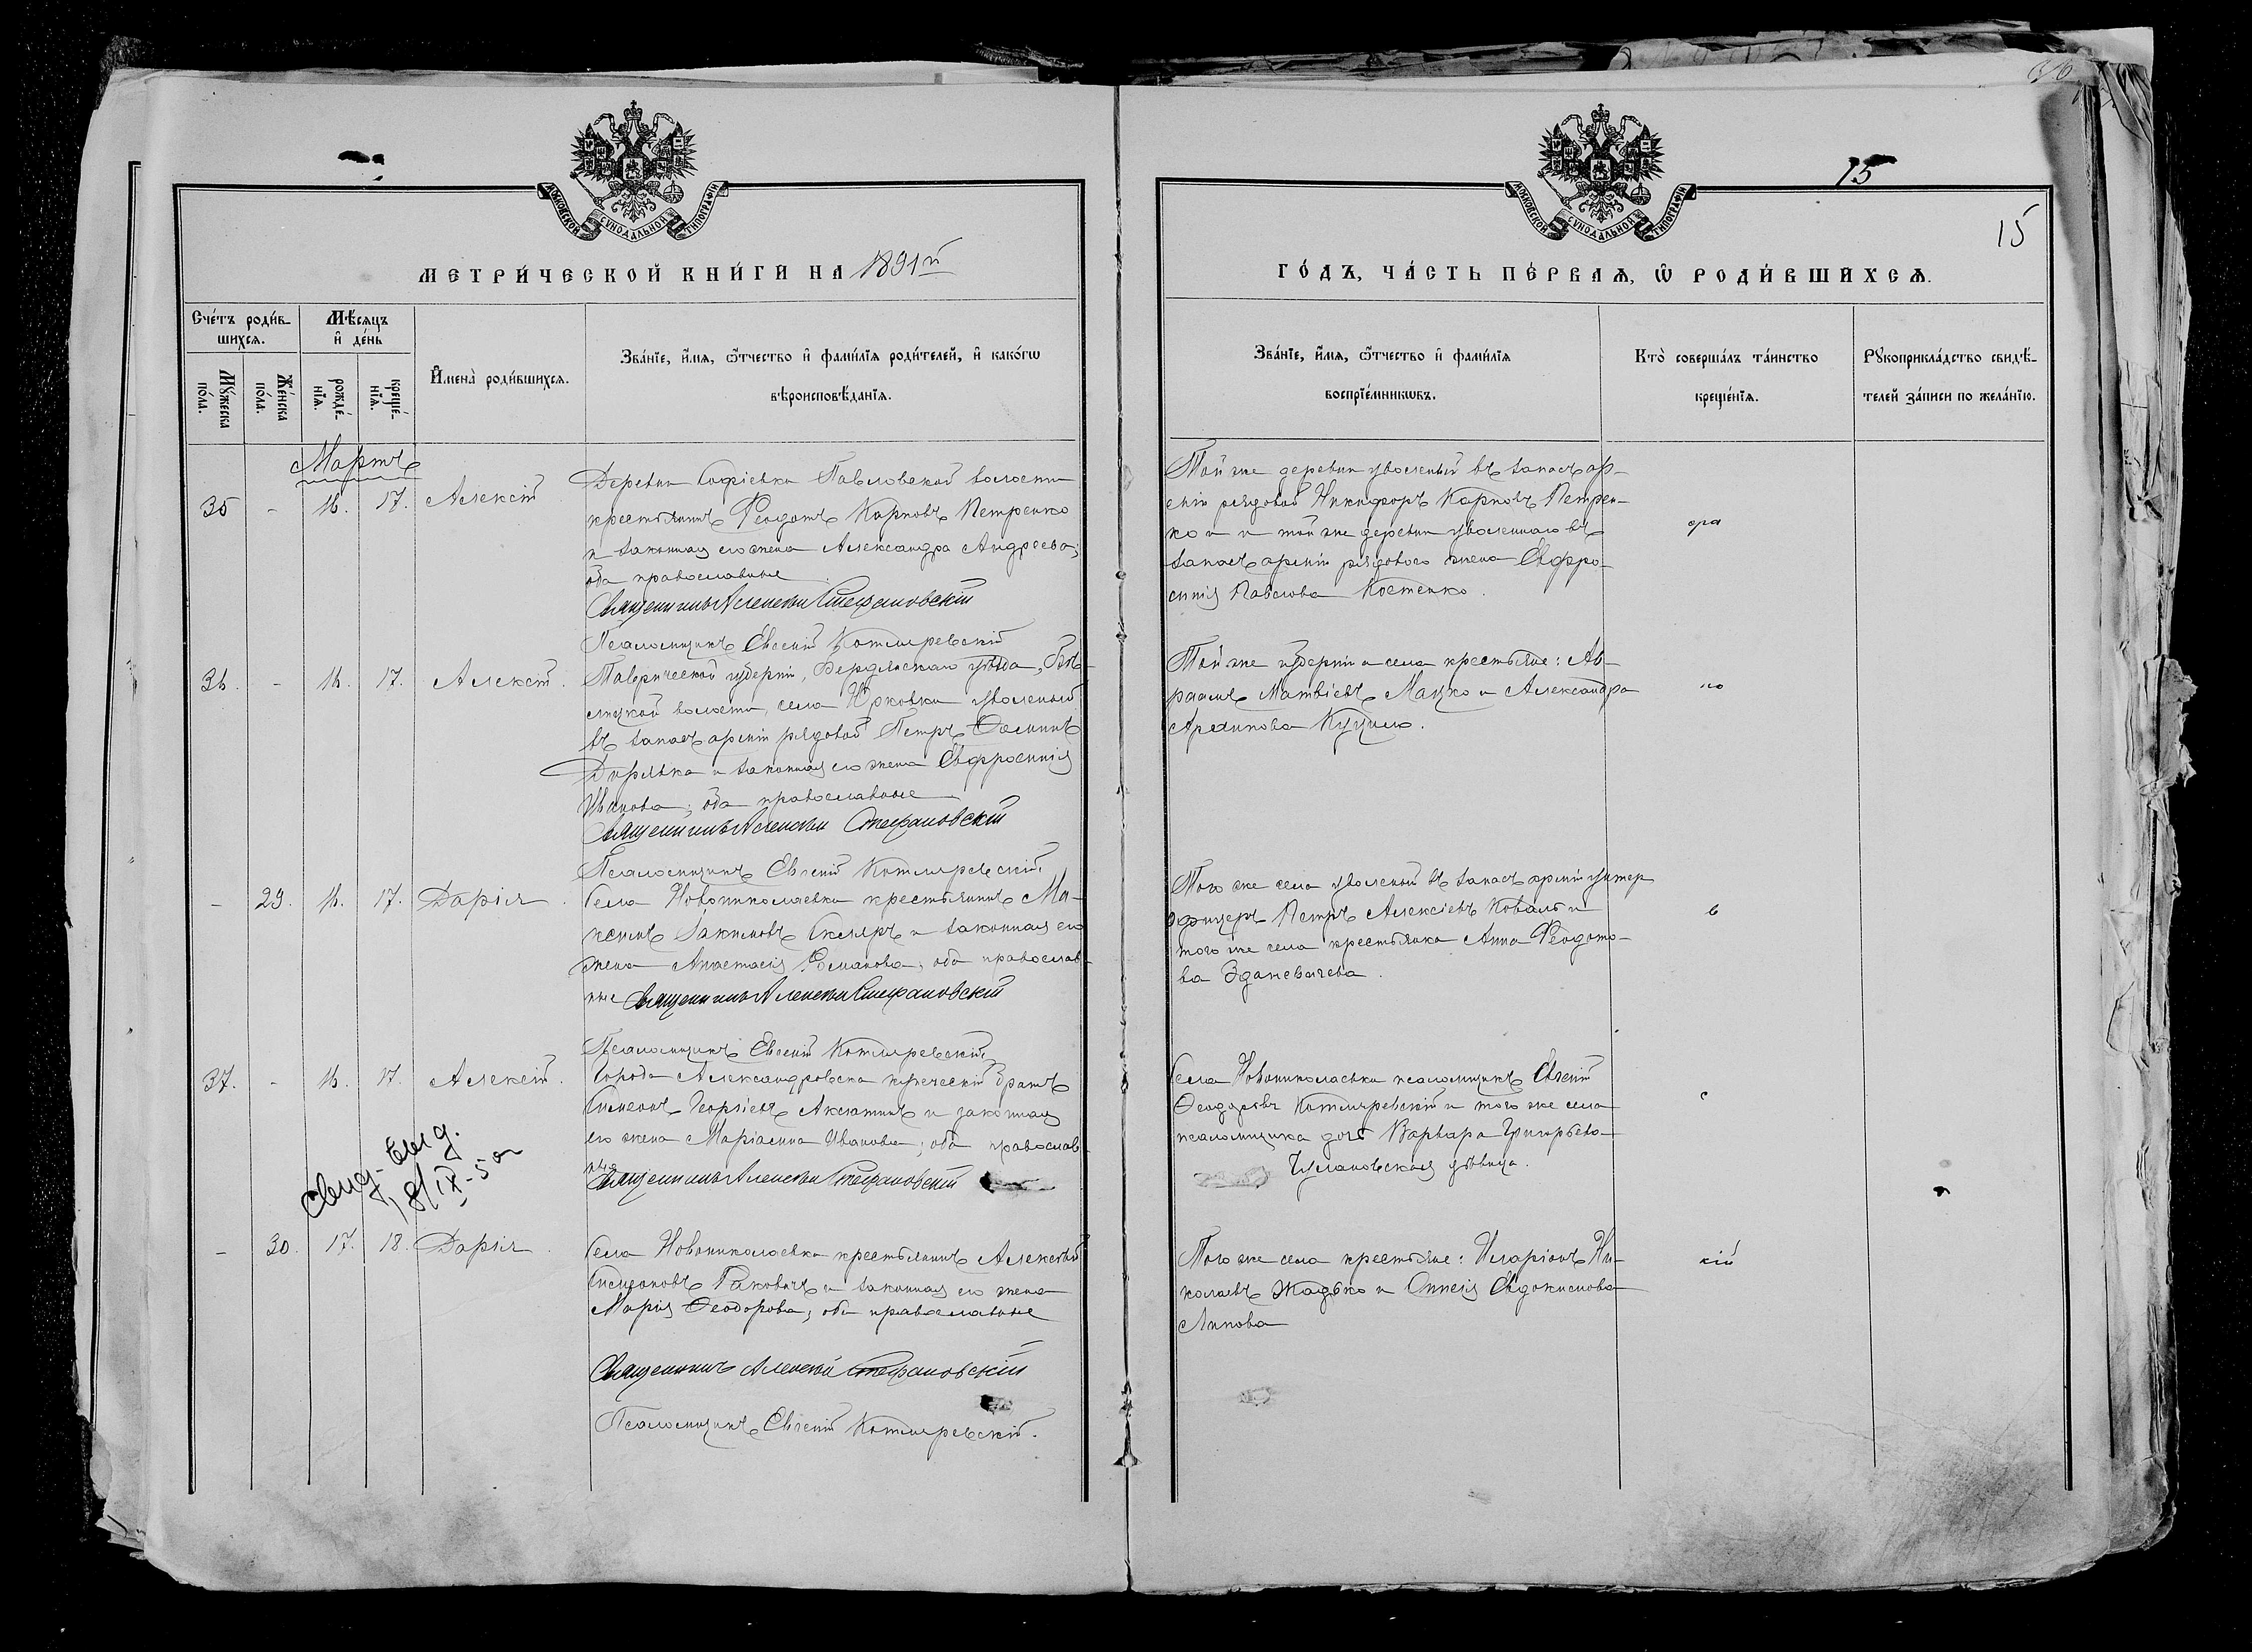 36
МОСКОВСКОЙ СУНОДАЛЬНОЙ ТИПОГРАФІИ
МЕТРИ́ЧЕСКОЙ КНИ́ГИ НА 1891й
Сче́тъ роди́в-
шихсѧ.
Мѣ́сяцъ
и҆ де́нь
Мꙋ́жеска
по́ла.
Же́нска
по́ла.
рожде́-
нїѧ.
креще́-
нїѧ.
И҆мена̀ роди́вшихсѧ.
Зва́нїе, и҆́мѧ, ѻ҆́тчество и҆ фами́лїѧ роди́телей, и҆ како́гѡ
вѣроисповѣ́данїѧ.
Мартъ
35 - 16. 17. Алексій
Деревни Софіевки Павловской волости
крестьянинъ Феодотъ Карповъ Петренко
и законная его жена Александра Андреева;
оба православные
Священникъ Алексій Стефановскій
Псаломщикъ Евгеній Котляревскій
36. - 16. 17. Алексій.
Таврической губерніи, Бердянскаго уѣзда,
волости, села Юрковки уволенный
въ запасъ арміи рядовой Петръ Ѳоминъ
и законная его жена Евфросинія
Иванова; оба православные
Священникъ Алексій Стефановскій
Псаломщикъ Евгеній Котляревскій.
- 29. 16. 17. Дарія.
Села Новониколаевки крестьянинъ Ма-
ксимъ Іакимовъ Скляръ и законная его
жена Анастасія Романова; оба православ-
ные Священникъ Алексій Стефановскій
Псаломщикъ Евгеній Котляревскій.
37. - 16. 17. Алексій.
Города Александровска купеческій братъ
Симеонъ Георгіевъ Аксютинъ и законная
его жена Маріамна Иванова; оба православ-
ные
Священникъ Алексій Стефановскій
- 30. 17. 18. Дарія.
Села Новониколаевки крестьянинъ Алексѣй
Раковичъ и законная его жена
Марія Ѳеодорова; оба православные
Священникъ Алексій Стефановскій
Псаломщикъ Евгеній Котляревскій.
15
15
МОСКОВСКОЙ СУНОДАЛЬНОЙ ТИПОГРАФІИ
ГО́ДЪ, ЧА́СТЬ ПЕ́РВАѦ, Ѡ҆ РОДИ́ВШИХСѦ.
Зва́нїе, и҆́мѧ, ѻ҆́тчество и҆ фами́лїѧ
воспрїе́мникѡвъ.
Кто̀ соверша́лъ та́инство
креще́нїѧ.
Рꙋкоприкла́дство свидѣ́-
телей за́писи по жела́нїю.
Той же деревни уволенный въ запасъ ар-
міи рядовой Никифоръ Карповъ Петрен-
ко и той же деревни уволеннаго въ
запасъ арміи рядового жена Евфро-
синія Павлова Костенко.
Той же губерніи и села крестьяне: Ав-
раамъ Матвіевъ Мацко и Александра
но
Того же села уволенный въ запасъ арміи унтер
офицеръ Петръ Алексіевъ Коваль и
того же села крестьянка Анна Феодото-
ва Зданевичева.
в
Села Новониколаевки псаломщикъ Евгеній
Ѳеодоровъ Котляревскій и того же села
псаломщика дочь Варвара Григорьева
дѣвица.
с
Того же села крестьяне: Иларіонъ Ни-
колаевъ Жадько и Евдокимова
кій